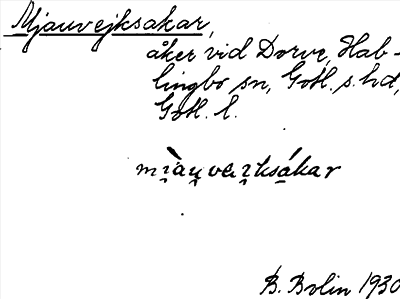 Mjauvejksakar,
åker vid Dorve, Hab-
lingbo sn, Gotl. s. hd,
Gotl. l.
mi̯àu̯vai̯ksákar
B. Bolin 1930